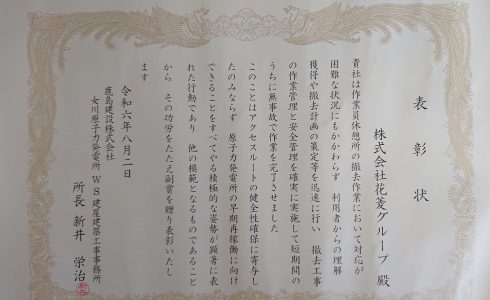 表彰状
株式会社花菱グループ 殿
貴社は作業員休憩所の撤去作業において対応が
困難な状況にもかかわらず 利用者からの理解
獲得や撤去計画の策定等を迅速に行い 撤去工事
の作業管理と安全管理を確実に実施して短期間の
うちに無事故で作業を完了させました
このことはアクセスルートの健全性確保に寄与し
たのみならず 原子力発電所の早期再稼働に向け
できることをすべてやる積極的な姿勢が顕著に表
れた行動であり 他の模範となるものであること
から その功労をたたえ副賞を贈り表彰いたし
ます
令和六年八月二日
鹿島建設株式会社
女川原子力発電所WS建屋建築工事事務所
所長 新井 栄治